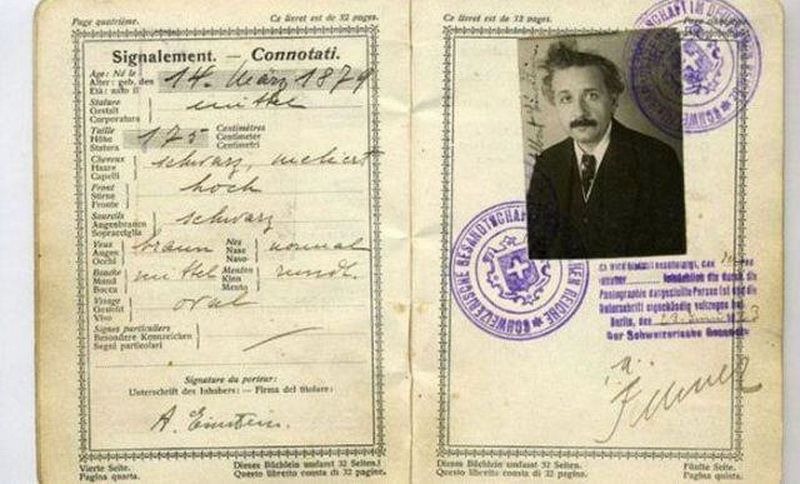 Page quatrième. Ce livret est de 32 pages.
Signalement. — Connotati.
Age: Né le
Alter: geb. den
Età: nato il
14. März 1879
Stature
Gestalt
Corporatura
mittel
Taille
Höhe
Statura
175
Centimètres
Centimeter
Centimetri
Cheveux
Haare
Capelli
schwarz, meliert
Front
Stirne
Fronte
hoch
Sourcils
Augenbrauen
Sopracciglia
schwarz
Yeux
Augen
Occhi
braun
Nez
Nase
Naso
normal
Bouche
Mund
Bocca
mittel
Menton
Kinn
Mento
rund.
Visage
Gesicht
Viso
oval
Signes particuliers
Besondere Kennzeichen
Segni particolari
Signature du porteur:
Unterschrift des Inhabers: — Firma del titolare:
A. Einstein.
Vierte Seite. Dieses Büchlein umfasst 32 Seiten.
Pagina quarta. Questo libretto consta di 32 pagine.
Ce livret est de 32 pages. Page cinquième.
SCHWEIZERISCHE GESANDTSCHAFT
DEUTSCHEN REICHE
Es wird hiermit bescheinigt, dass
die durch die
Photographie dargestellte Person ist und die
Unterschrift eigenhändig vollzogen hat.
Berlin, den
Der Schweizerische Gesandte
Dieses Büchlein umfasst 32 Seiten. Fünfte Seite.
Questo libretto consta di 32 pagine. Pagina quinta.